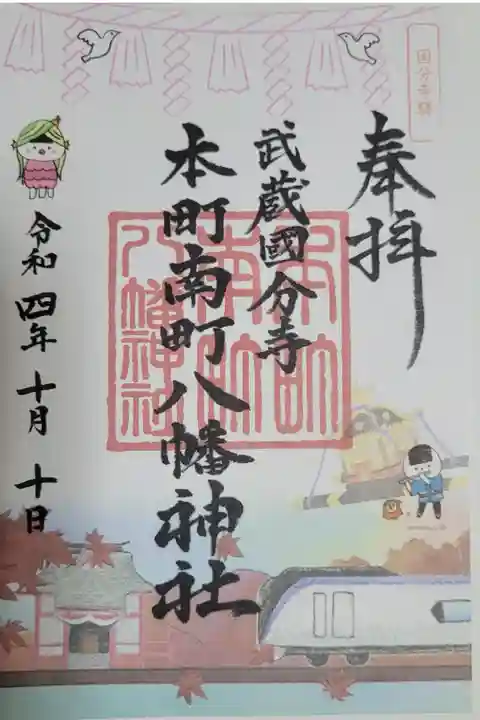 国分寺駅
奉拝
武蔵國分寺
本町南町八幡神社
本町
南町
八幡神社
令和四年十月十日